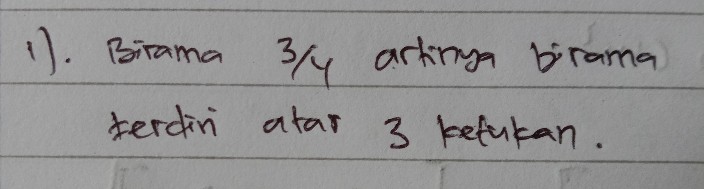 1). Birama 3/4 artinya birama
terdiri atas 3 ketukan.